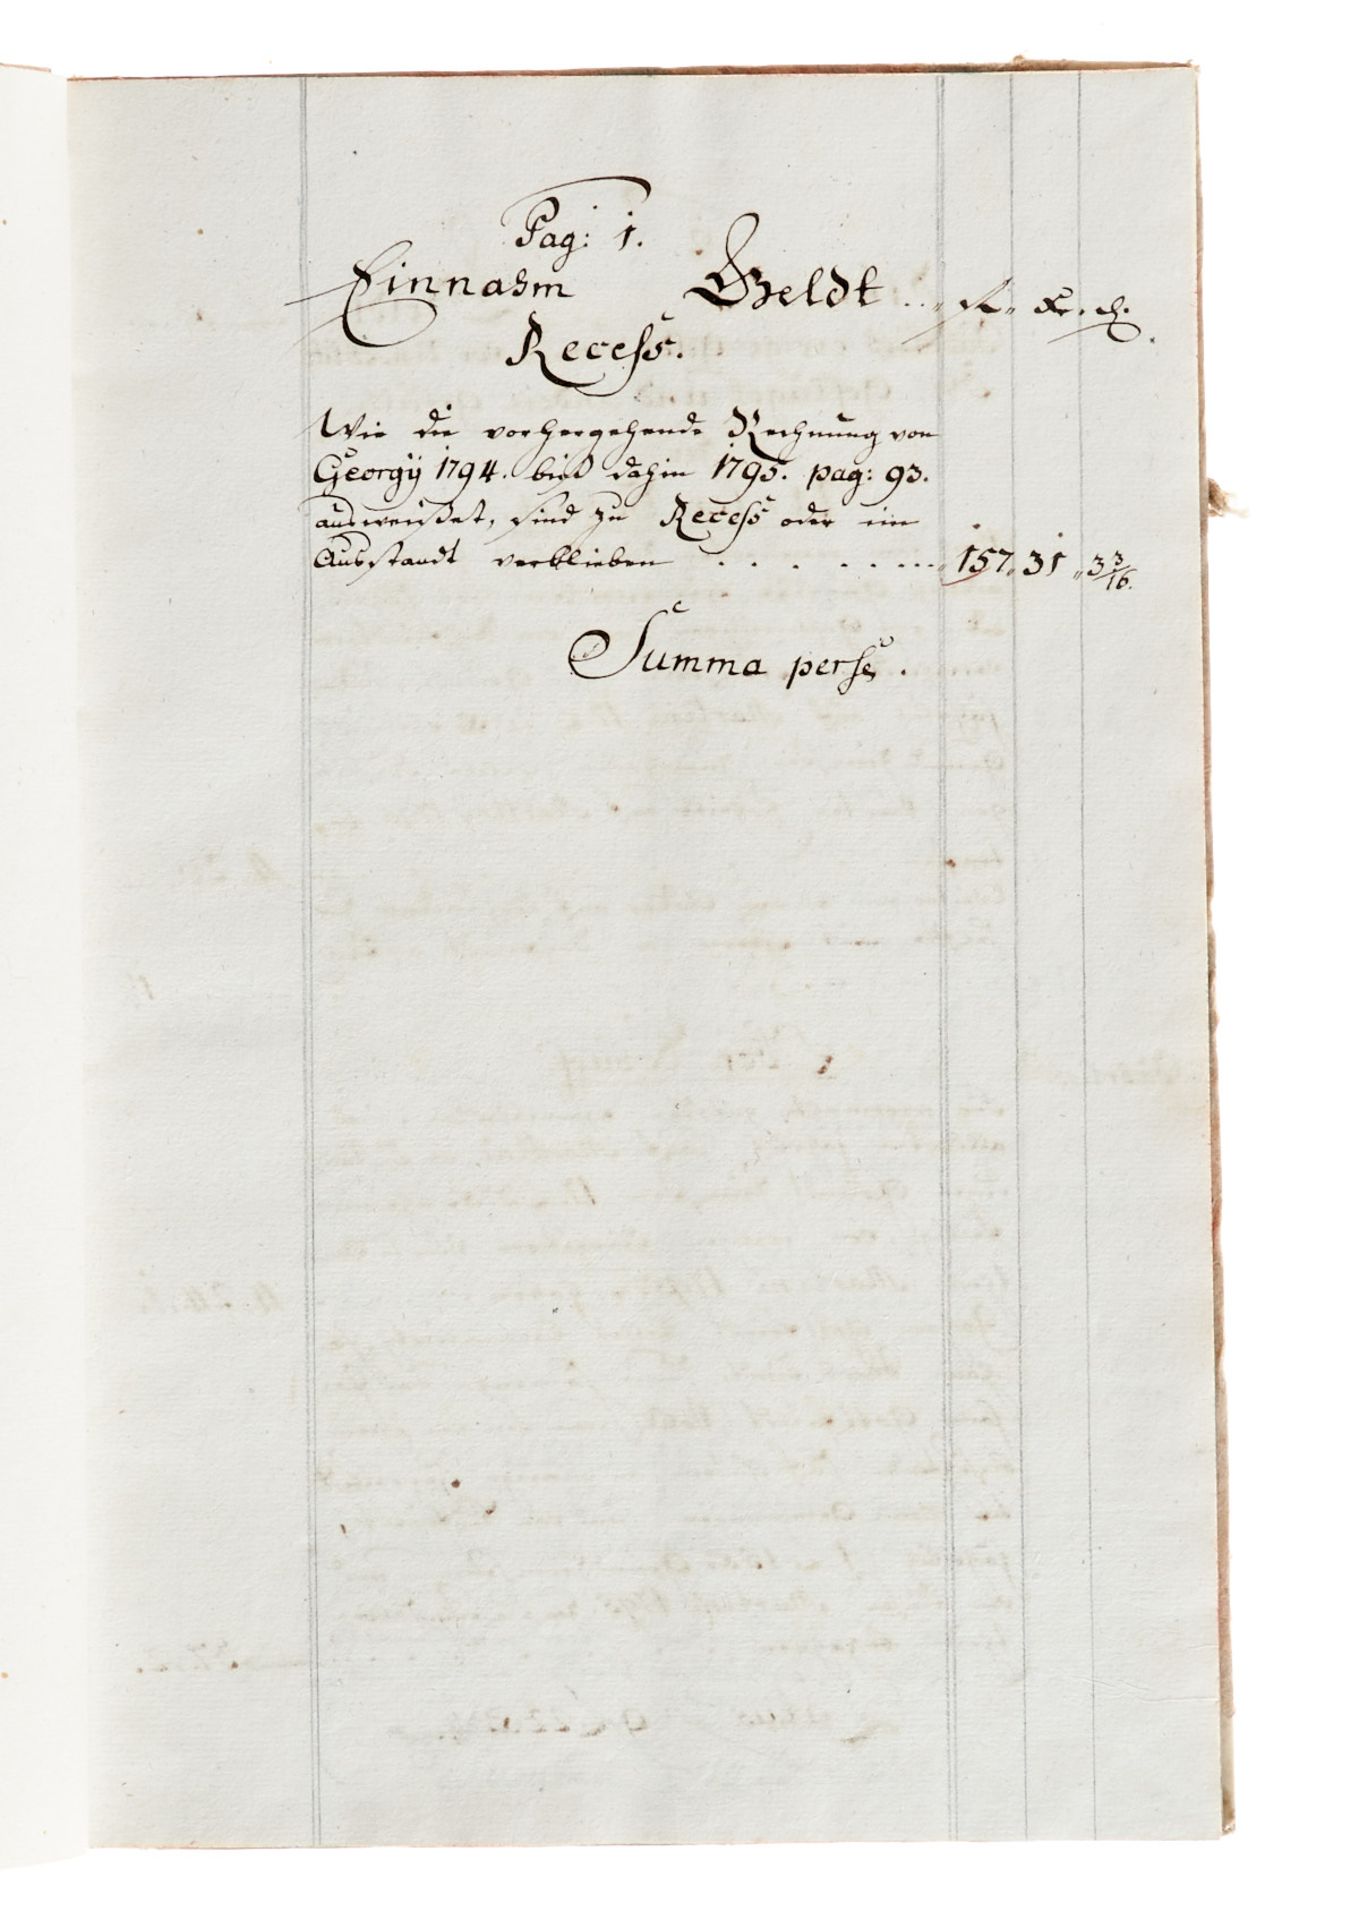 Pag: 1.
Einnahm Geldt .. fl. Xr. h.
Recess.
Wie die vorhergehende Rechnung von
Georgÿ 1794. biß dahin 1795. pag: 93.
ausweißet, sind zu Recess oder im
Ausstandt verblieben . . . . . . . . . 157,, 31 ,, 3 3/16.
Summa perse.